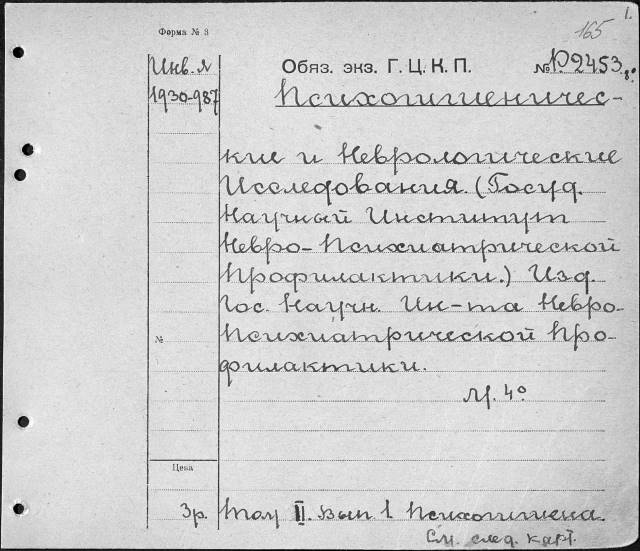 1.
165
Форма № 3
Инв. л
1930-987
Обяз. экз. Г. Ц. К. П. № Р2453 8°
Психогигиеничес-
кие и Неврологические
Исследования. (Госуд.
Научный Институт
Невро-Психиатрической
Профилактики.) Изд.
Гос. Научн. Ин-та Невро-
Психиатрической Про-
филактики.
№
М. 4°
Цена
3р.
Том II. Вып 1 Психогигиена.
См. след. карт.